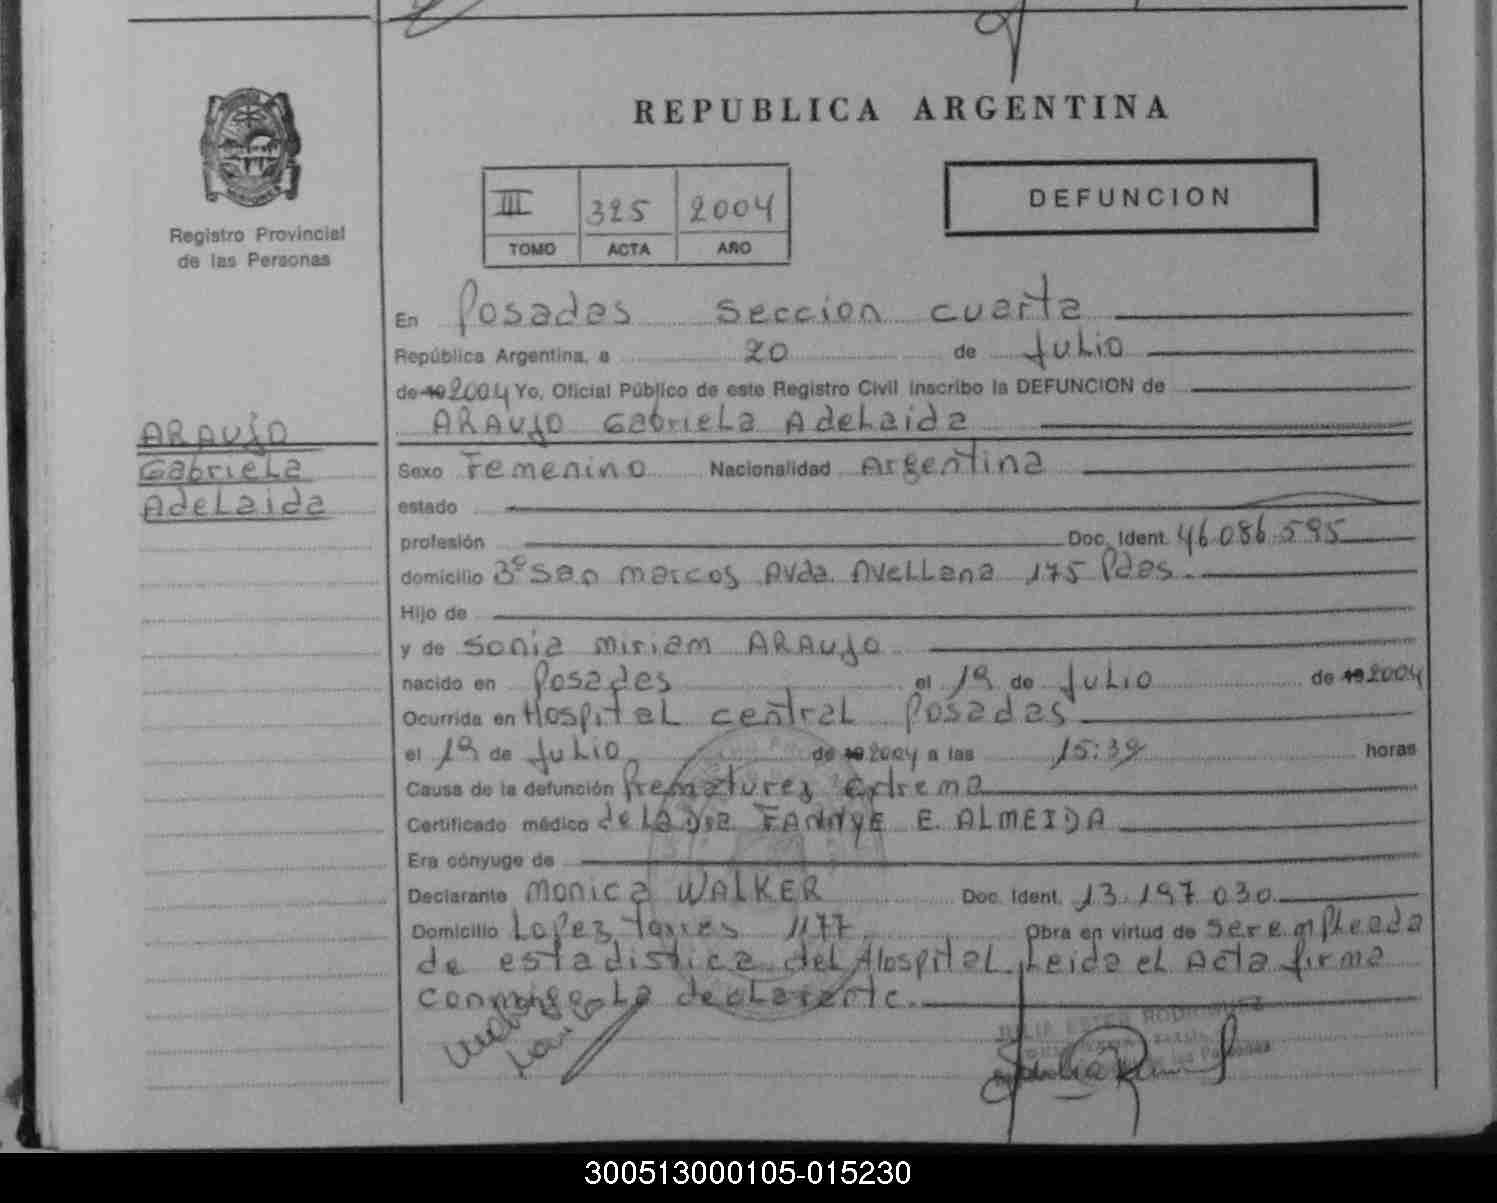 REPUBLICA ARGENTINA
Registro Provincial
de las Personas
III 325 2004
TOMO ACTA AÑO
DEFUNCION
En Posadas seccion cuarta
República Argentina, a 20 de Julio
de 19 2004 Yo, Oficial Público de este Registro Civil inscribo la DEFUNCION de
ARAUJO Gabriela Adelaida
ARAUJO
Gabriela
Adelaida
Sexo Femenino Nacionalidad Argentina
estado
profesión Doc. Ident. 46.086.595
domicilio Bº San Marcos Avda. Avellana 175 Pdas.
Hijo de
y de Sonia Miriam ARAUJO
nacido en Posadas el 19 de Julio de 19 2004
Ocurrida en Hospital central Posadas
el 19 de Julio de 19 2004 a las 15:39 horas
Causa de la defunción Prematurez extrema
Certificado médico de LA Dra FANNYE E. ALMEIDA
Era cónyuge de
Declarante Monica WALKER Doc. Ident. 13.197.030
Domicilio Lopez Torres 1177 Obra en virtud de ser empleada
de estadistica del Hospital. Leida el Acta firma
conmigo La declarante.
JULIA ESTER RODRIGUEZ
300513000105-015230